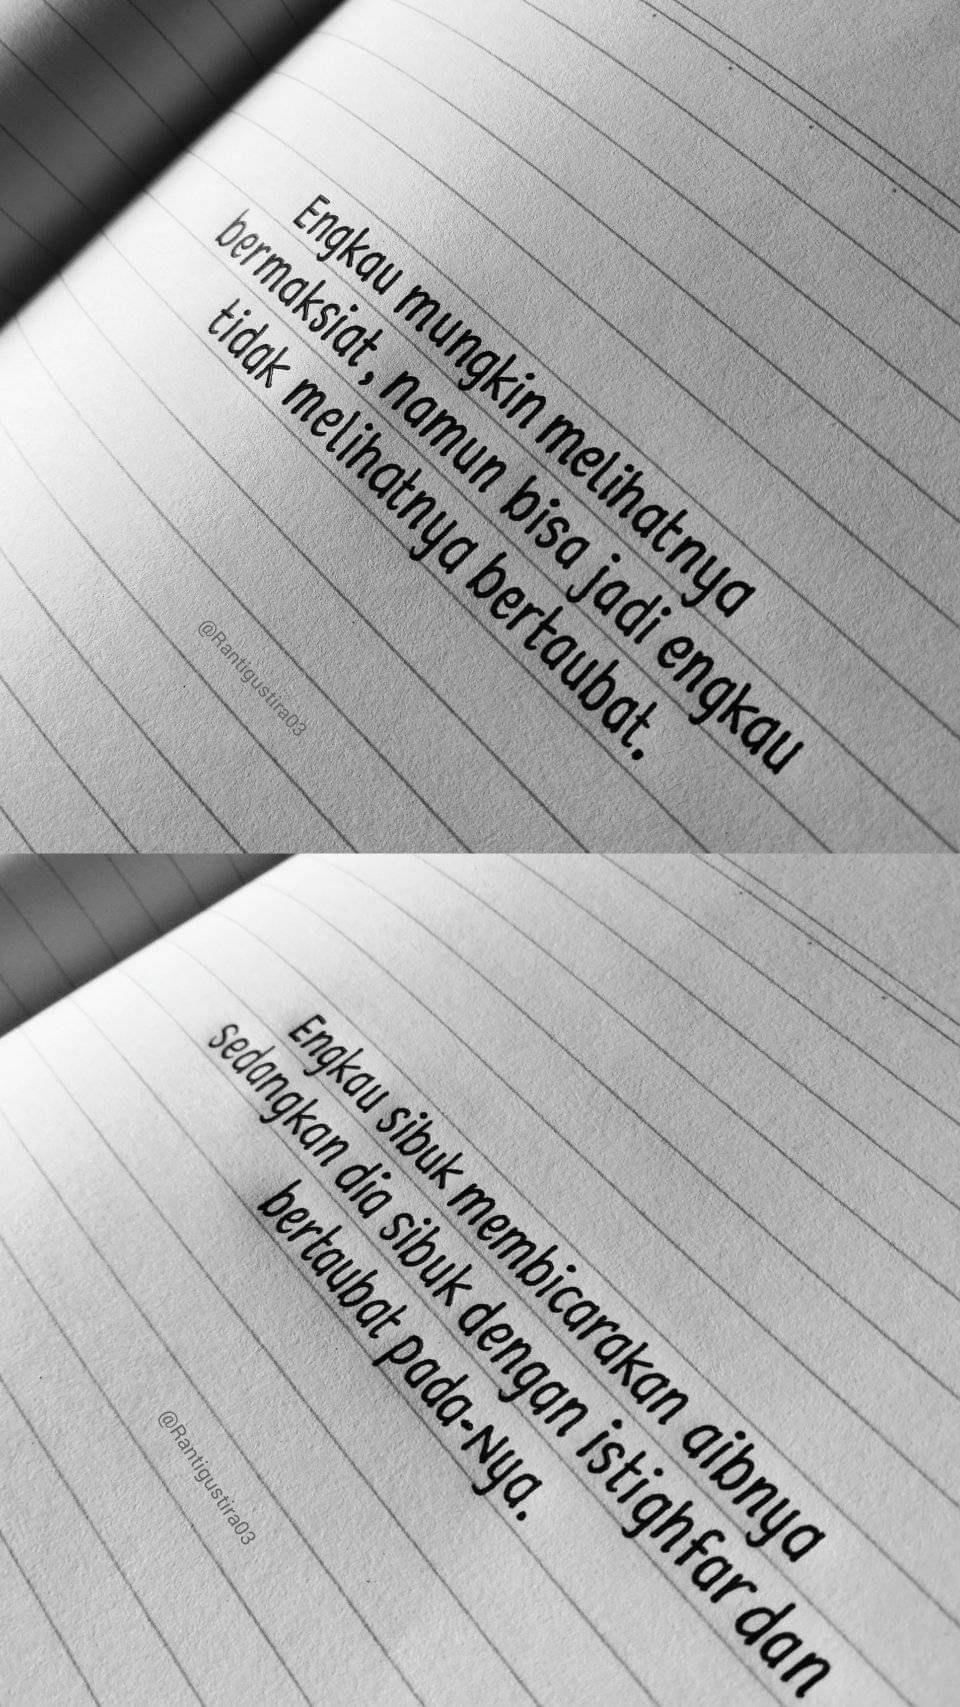 Engkau mungkin melihatnya
bermaksiat, namun bisa jadi engkau
tidak melihatnya bertaubat.
@Rantigustira03
Engkau sibuk membicarakan aibnya
sedangkan dia sibuk dengan istighfar dan
bertaubat pada-Nya.
@Rantigustira03